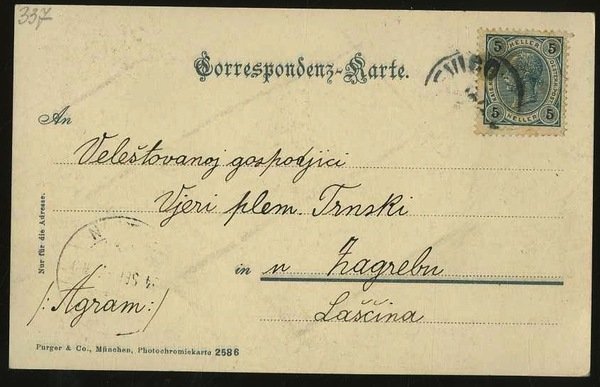 337
Correspondenz-Karte.
5 5
HELLER
HELLER
5 5
An
Veleštovanoj gospodjici
Vjeri plem. Trnski
in u Zagrebu
/: Agram :/
Lašćina
Nur für die Adresse.
Purger & Co., München, Photochromiekarte 2586